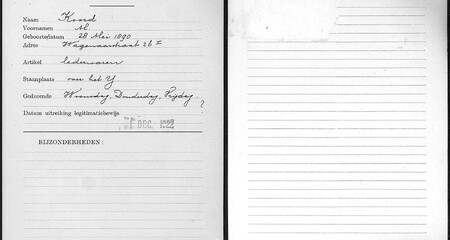 Naam Koord
Voornamen M.
Geboortedatum 28 Mei 1890
Adres Wagenaarstraat 26 I
Artikel lederwaren
Staanplaats over het Y
Gedurende Woensdag, Donderdag, Vrijdag
Datum uitreiking legitimatiebewijs ?
DEC. 1922
BIJZONDERHEDEN: